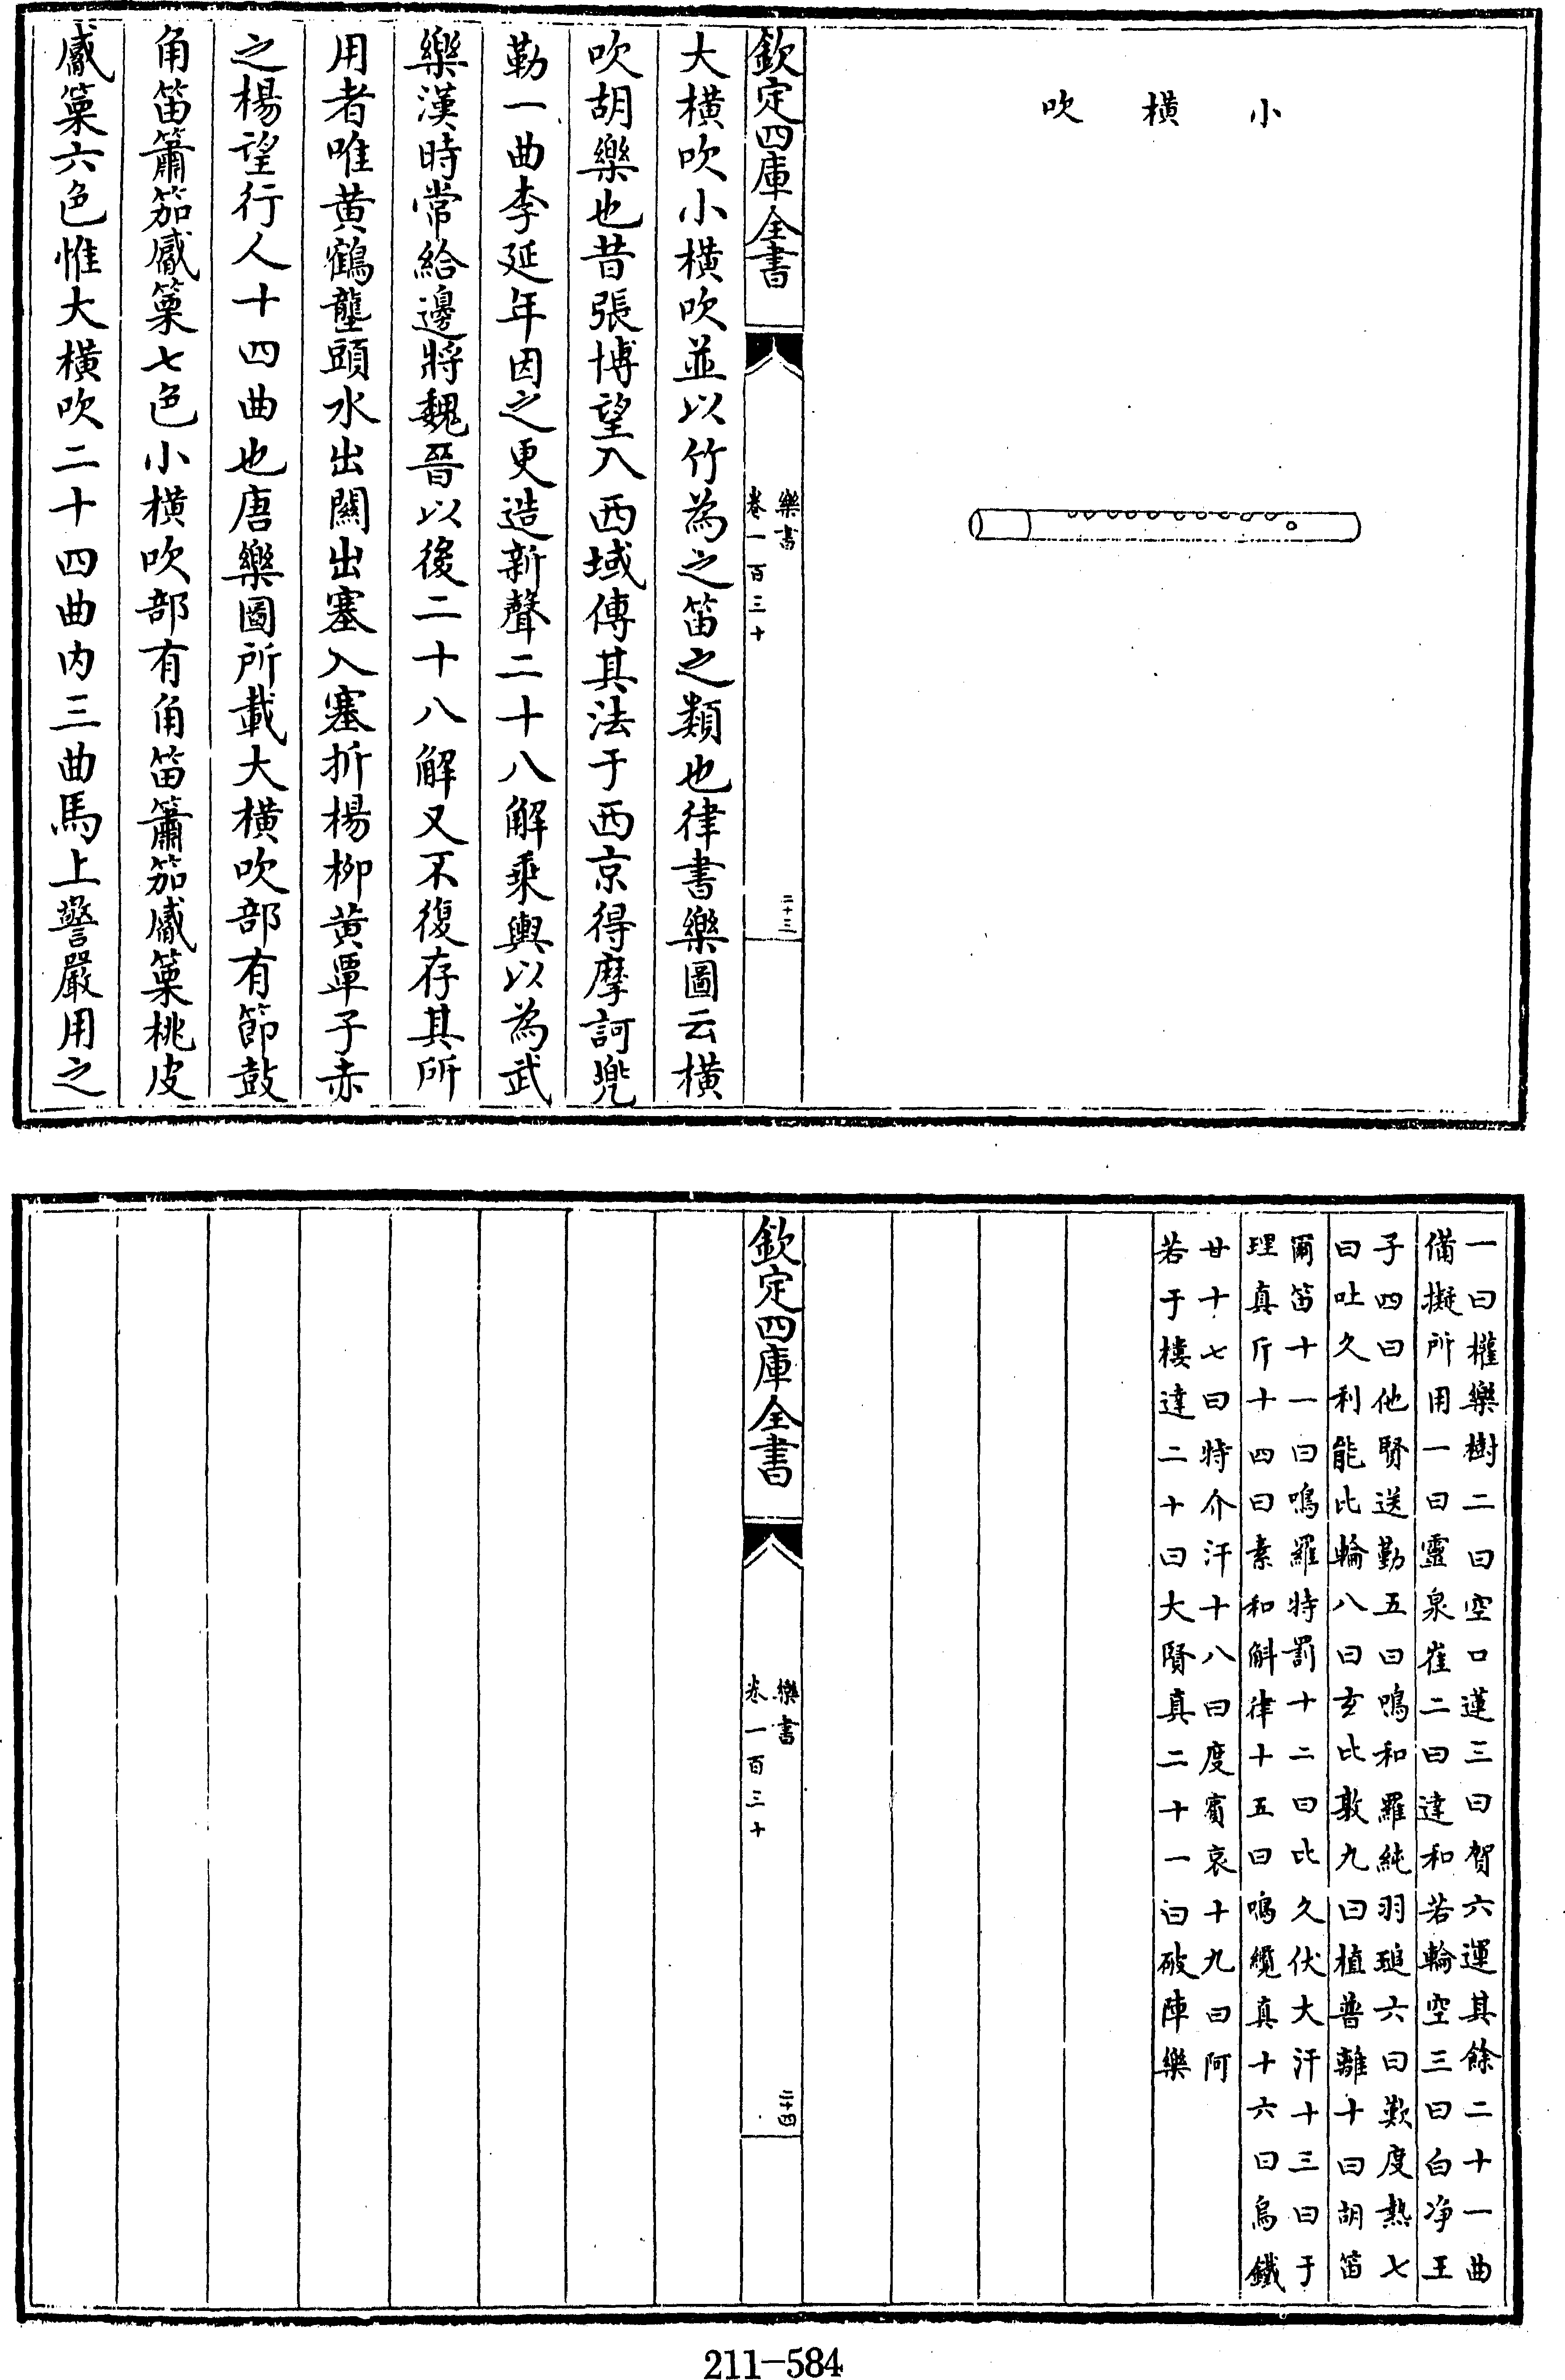 小橫吹
欽定四庫全書
樂書
卷一百三十
二十三
大橫吹小橫吹並以竹為之笛之類也律書樂圖云橫
吹胡樂也昔張博望入西域傳其法于西京得摩訶兠
勒一曲李延年因之更造新聲二十八解乘輿以為武
樂漢時常給邊將魏晉以後二十八解又不復存其所
用者唯黄鶴壟頭水出關出塞入塞折楊柳黄覃子赤
之楊望行人十四曲也唐樂圖所載大橫吹部有節鼓
角笛簫笳觱篥七色小橫吹部有角笛簫笳觱篥桃皮
觱篥六色惟大橫吹二十四曲内三曲馬上警嚴用之
一曰權樂樹二曰空口蓮三曰賀六運其餘二十一曲
備擬所用一曰靈泉崔二曰達和若輪空三曰白净王
子四曰他賢送勤五曰鳴和羅純羽瑝六曰歎度熱七
曰吐久利能比輪八曰玄比敦九曰植普離十曰胡笛
爾笛十一曰鳴羅特罰十二曰比久伏大汗十三曰于
理真斤十四曰素和斛律十五曰鳴纜真十六曰烏鐵
甘十七曰特介汗十八曰度賓哀十九曰阿
若于樓達二十曰大賢真二十一曰破陣樂
欽定四庫全書
樂書
卷一百三十
二十四
211-584